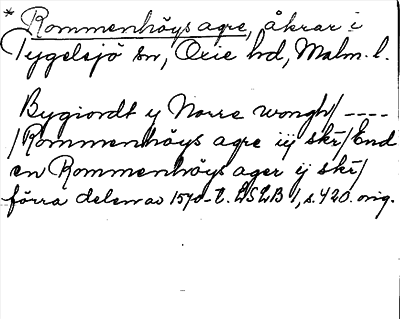 * Rommenhöys agre, åkrar i
Tygelsjö sn, Oxie hd, Malm. l.
Bygiordt y Norre wongh/ ----
/Rommenhöys agre iij skr/ End
en Rommenhöys ager ij skr/
förra delen av 1570-t. LSLB 1, s. 420. orig.